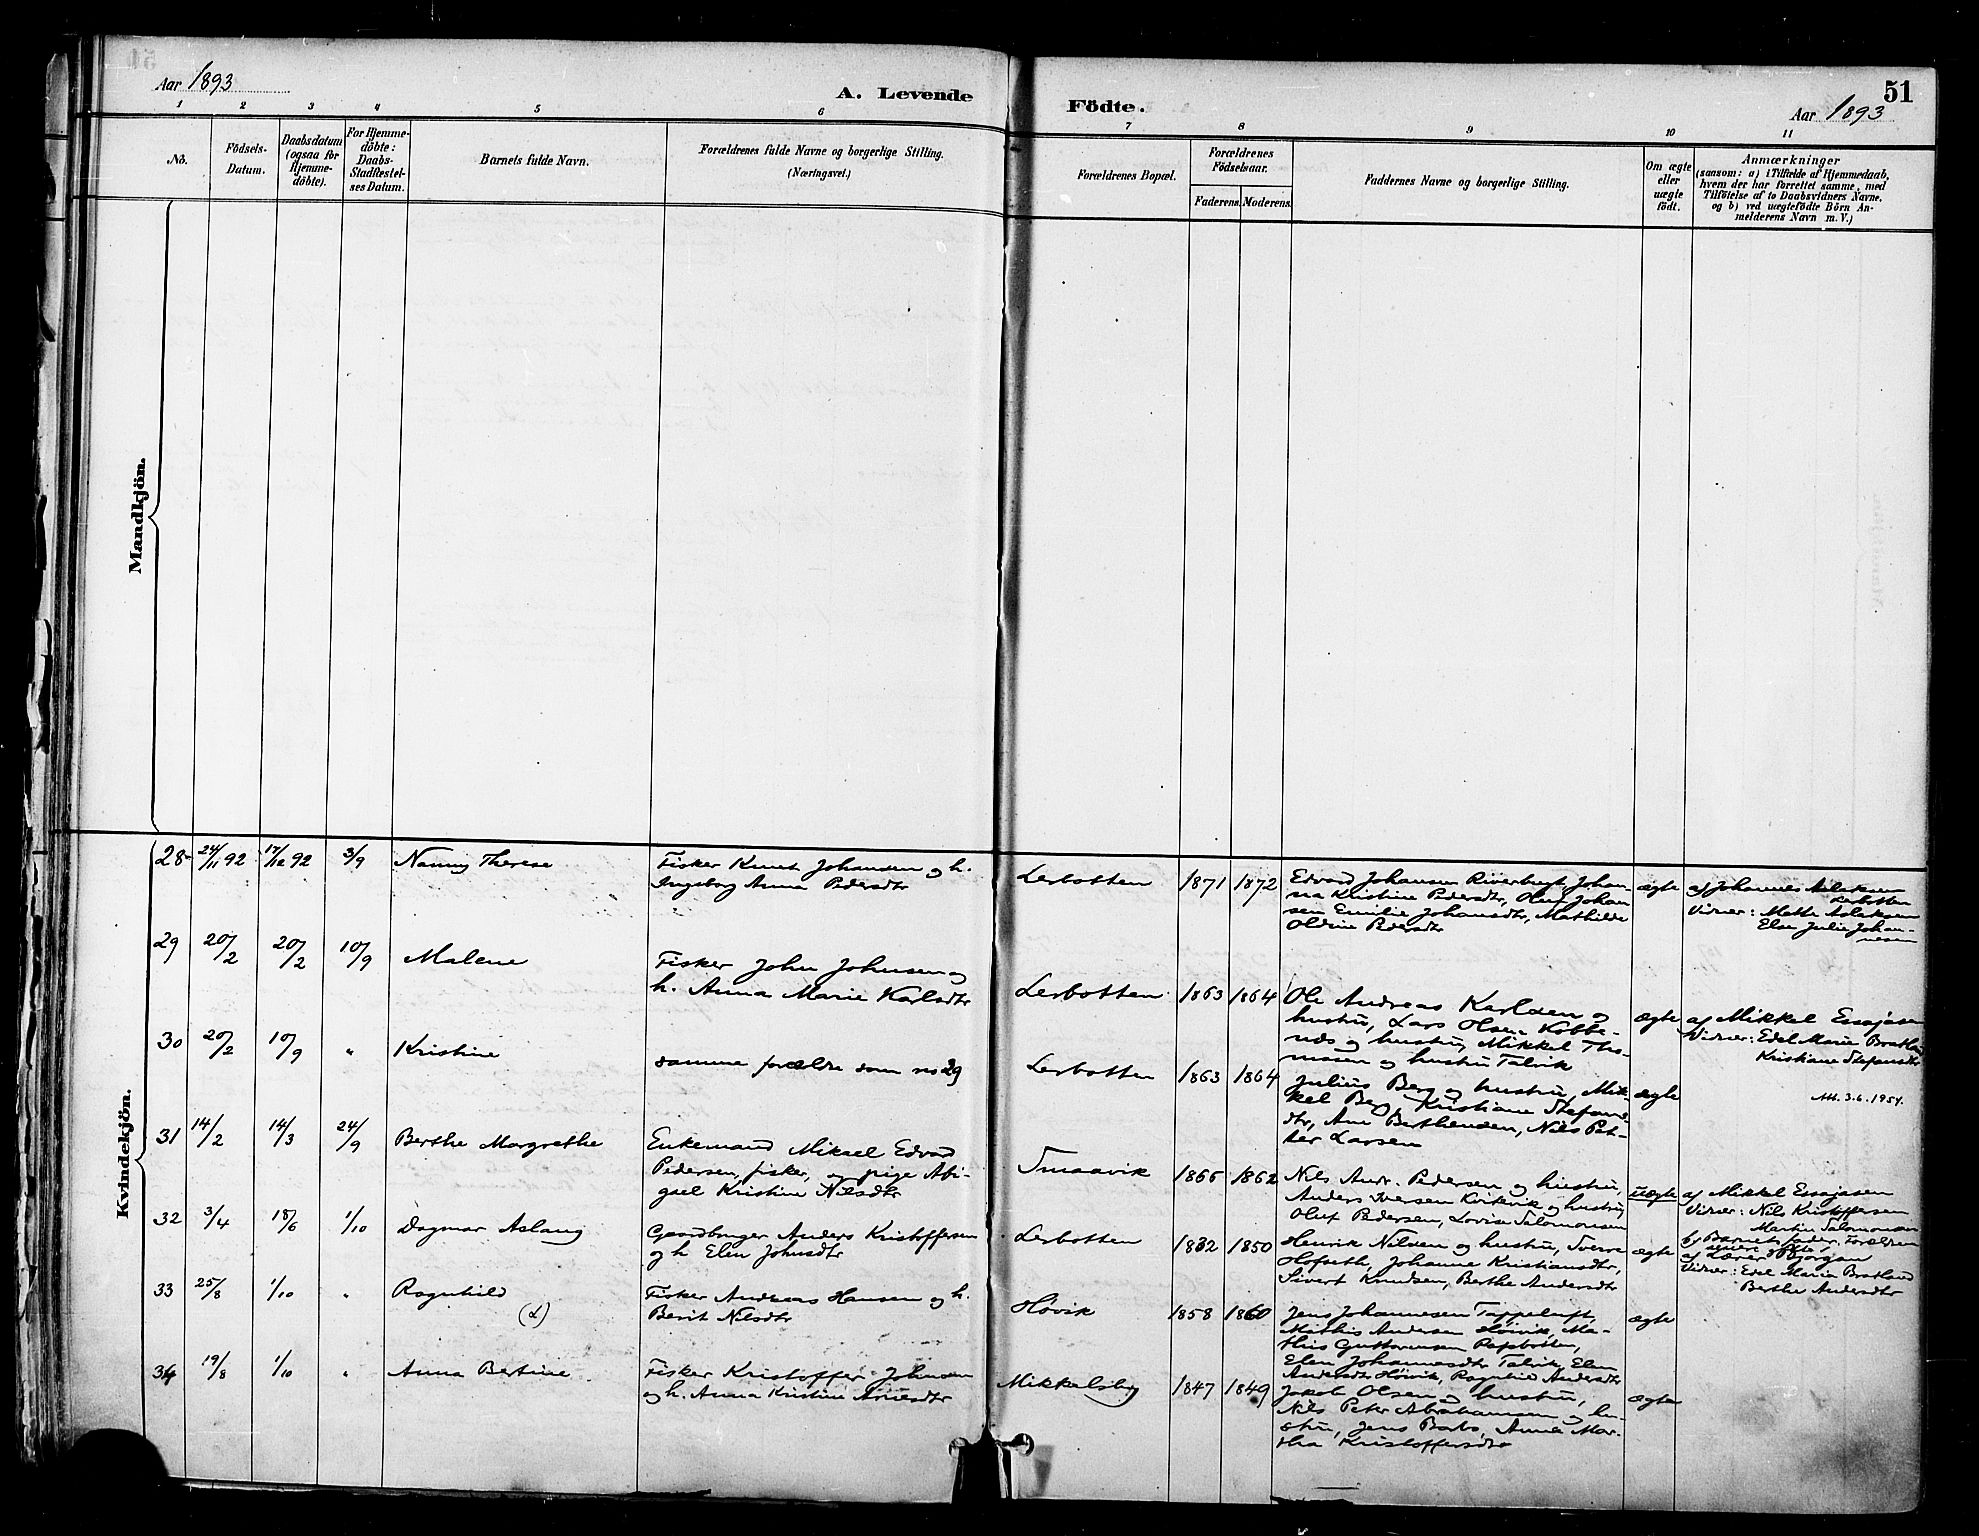 51
Aar 1893
A. Levende Födte.
Aar 1893
1 2 3 4 5 6 7 8 9 10 11
No.
Födsels-
Datum.
Daabsdatum
(ogsaa for
Hjemme-
döbte).
For Hjemme-
döbte:
Daabs-
Stadfæstel-
ses Datum.
Barnets fulde Navn.
Forældrenes fulde Navne og borgerlige Stilling.
(Næringsvei.)
Forældrenes Bopæl.
Forældrenes
Födselsaar.
Faderens. Moderens.
Faddernes Navne og borgerlige Stilling.
Om ægte
eller
uægte
födt.
Anmærkninger
(saasom: a) i Tilfælde af Hjemmedaab,
hvem der har forrettet samme, med
Tilföielse af to Daabsvidners Navne,
og b) ved uægtefödte Börn An-
melderens Navn m. V.)
Mandkjön.
Kvindekjön.
28 24/11 92 17/12 92 3/9 Nanny Therese
Fisker Knut Johansen og h.
Ingeborg Anna Pedersdtr
Lerbotten 1871 1872
Edvard Johansen Riverbugt, Johan-
na Kristine Pedersdtr, Oluf Johan
sen Emilie Johansdtr, Mathilde
Oldine Pedersdtr
ægte
af Johannes Aslaksen
Lerbotten
Vidner: Mette Aslaksen
Else Julie Johan-
nesen
29 20/2 20/2 10/9 Malene
Fisker John Johnsen og
h. Anna Marie Karlsdtr
Lerbotten 1863 1864
Ole Andreas Karlsen og
hustru, Lars Olsen Kobbe-
nds og hustru, Mikkel Tho-
massen og hustru Talvik
ægte
af Mikkel Essajasen
Vidner: Edel Marie Bratland
Kristiane Stefansdtr
30 20/2 10/9 " Kristine
samme forældre som no 29
Lerbotten 1863 1864
Julius Berg og hustru, Mik-
kel Berg, Kristiane Stefans-
dtr, Ane Berthensen, Nils Pet-
ter Larsen
ægte
Att. 3.6.1954.
31 14/2 14/3 24/9 Berthe Margrethe
Enkemand Mikael Edvard
Pedersen, fisker, og pige Abi-
gael Kristine Nilsdtr
Smaavik 1866 1862
Nils Andr. Pedersen og hustru,
Anders Iversen Kvikvik og hustru,
Oluf Pedersen, Lovise Salomonsen
uægte
af Mikkel Essajasen
Vidner: Nils Kristoffersen
Martin Salomonsen
b) Barnets fader, Forældren
senere gifte,
32 3/4 18/6 1/10 Dagmar Aslaug
Gaardbruger Anders Kristoffersen
og h. Elen Johnsdtr
Lerbotten 1832 1850
Henrik Nilsen og hustru, Sverre
Hofseth, Johanne Kristiansdtr,
Sivert Knudsen, Berthe Andersdtr
ægte
af Lærer Bjørgan
Vidner: Edel Marie Bratland
Berthe Andersdtr
33 25/8 1/10 " Ragnhild
(d)
Fisker Andreas Hansen og h.
Berit Nilsdtr
Høvik 1858 1860
Jens Johannesen Tappeluft,
Mathis Andersen Høivik, Ma-
this Guttormsen
Elen Johannesdtr Talvik, Elen
Andersdtr Høivik, Ragnhild Andersdtr
ægte
34 19/8 1/10 " Anna Bertine
Fisker Kristoffer Johnsen
og h. Anna Kristine
Mikkelsby 1847 1849
Jakob Olsen og hustru,
Nils Peter Abrahamsen og hu-
stru, Jens Barbo, Anna Mar-
tha Kristoffersdtr
ægte